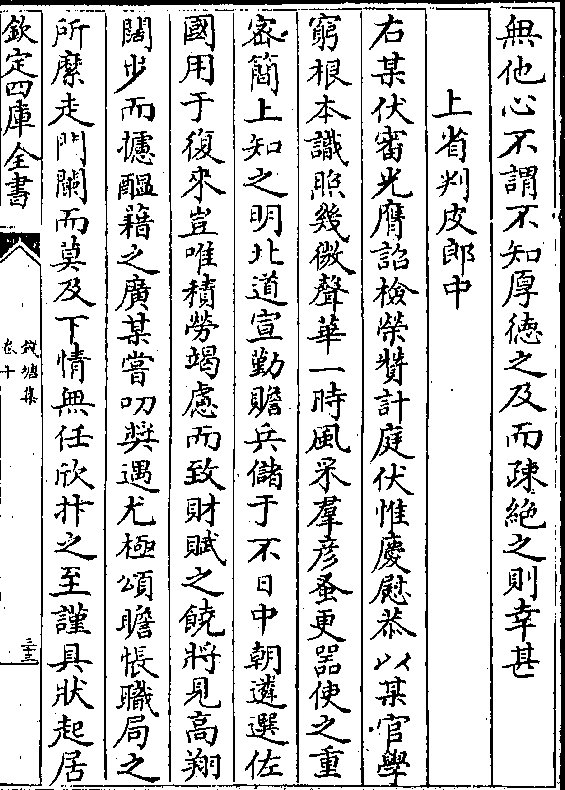 無他心不謂不知厚徳之及而疎絶之則幸甚
上省判皮郎中
右某伏審光膺詔檢榮贊計庭伏惟慶慰恭以某官學
窮根本識照幾微聲華一時風采羣彦蚤更器使之重
密簡上知之明北道宣勤贍兵儲于不日中朝遴選佐
國用于復來豈唯積勞竭慮而致財賦之饒將見高翔
闊步而攄醖藉之廣某嘗叨奬遇尤極頌瞻悵職局之
所縻走門闌而莫及下情無任欣抃之至謹具狀起居
欽定四庫全書
錢塘集
卷十
三十三